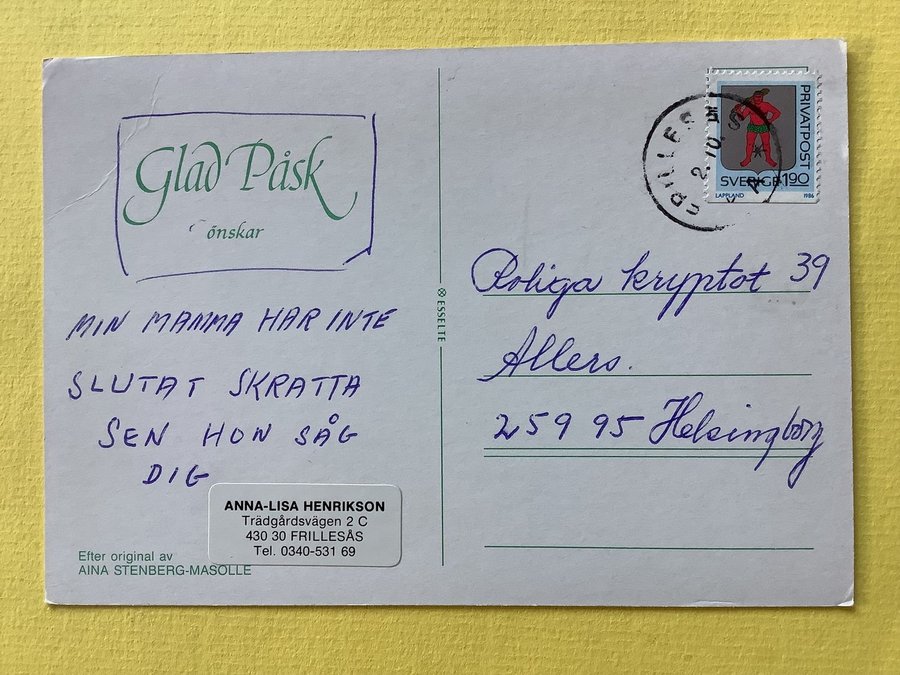 Glad Påsk
önskar
MIN MAMMA HAR INTE
SLUTAT SKRATTA
SEN HON SÅG
DIG
ANNA-LISA HENRIKSON
Trädgårdsvägen 2 C
430 30 FRILLESÅS
Tel. 0340-531 69
Efter original av
AINA STENBERG-MASOLLE
ESSELTE
PRIVATPOST
SVERIGE 1.90
LAPPLAND 1986
Roliga kryptot 39
Allers.
259 95 Helsingborg